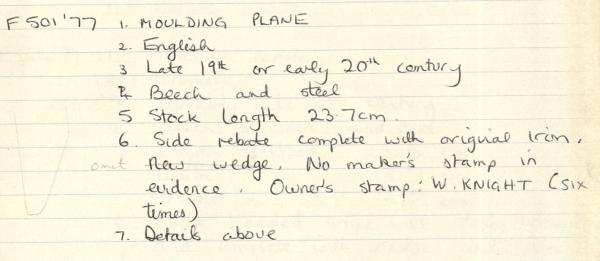 F 501 '77 1. MOULDING PLANE
2. English
3 Late 19th or early 20th century
4. Beech and steel
5 Stock length 23.7cm.
6. Side rebate complete with original iron.
omit New wedge. No maker's stamp in
evidence. Owner's stamp: W. KNIGHT (six
times)
7. Details above